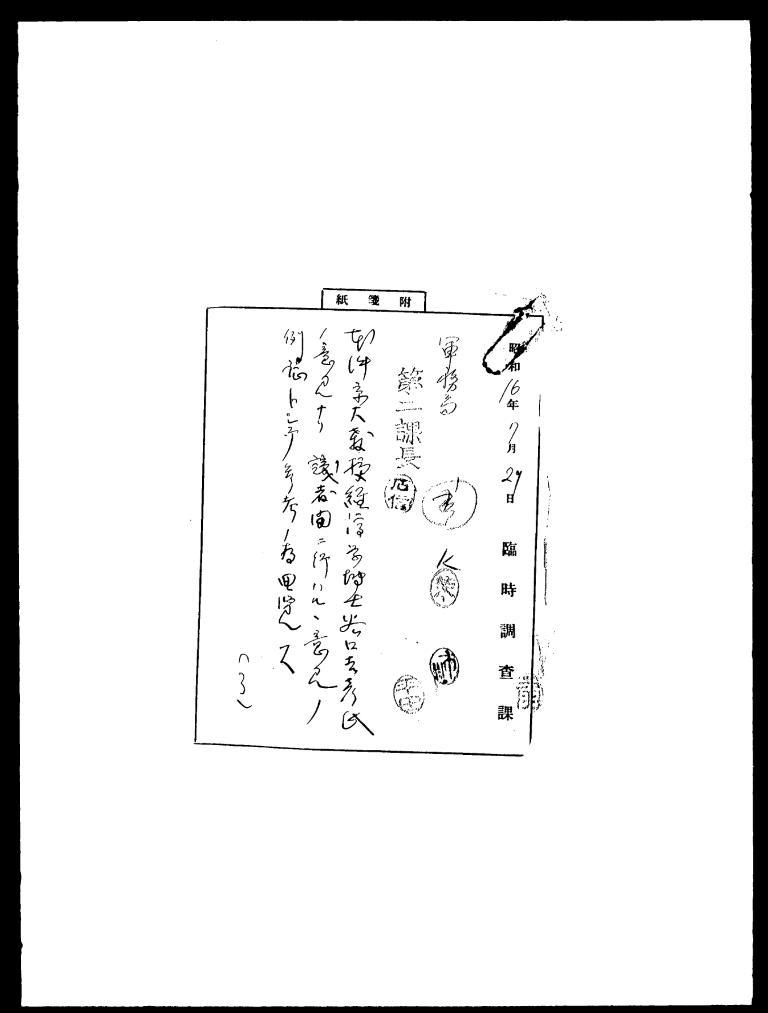 附箋紙
昭和16年7月29日 臨時調査課
軍務局
第二課長
本件京大教授経済学博士谷口吉彦氏
ノ意見ナリ 識者間ニ行ハルヽ意見ノ
例証トシテ御参考ノ為回覧ス
(了)